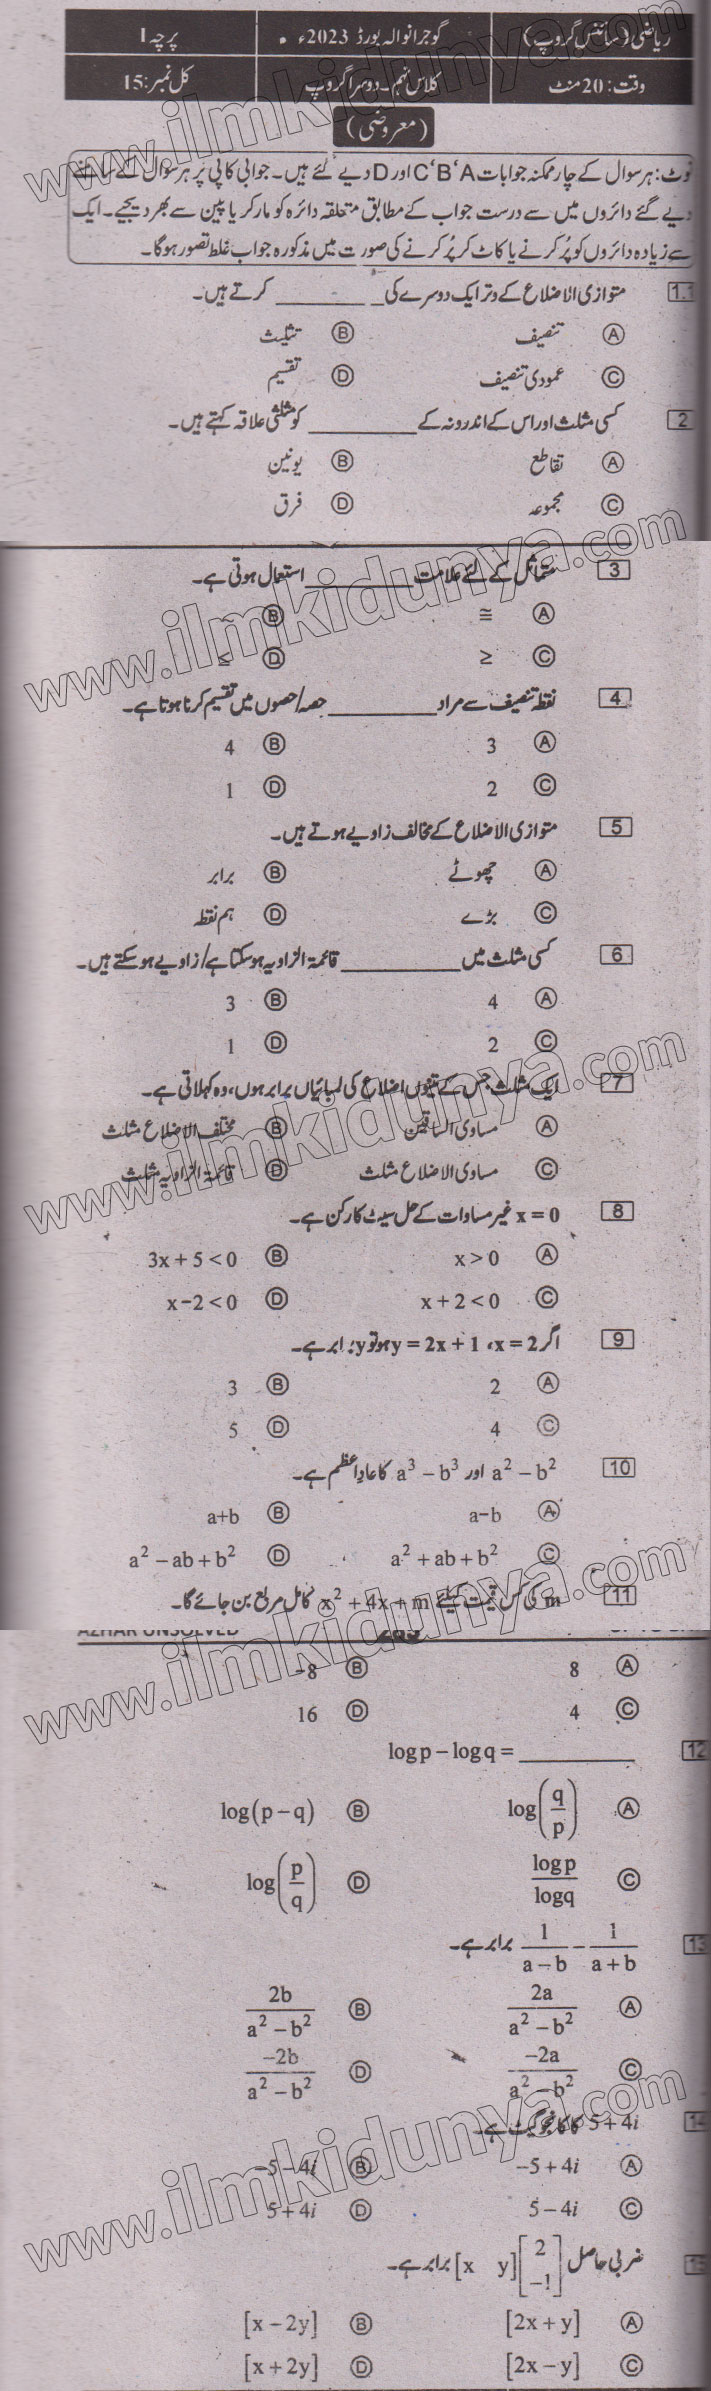 ریاضی (سائنس گروپ) گوجرانوالہ بورڈ 2023ء پرچہ I
وقت: 20 منٹ کلاس نہم۔ دوسرا گروپ کل نمبر: 15
(معروضی)
نوٹ: ہر سوال کے چار ممکنہ جوابات A‘ B‘ C اور D دیے گئے ہیں۔ جوابی کاپی پر ہر سوال کے سامنے
دیے گئے دائروں میں سے درست جواب کے مطابق متعلقہ دائرہ کو مارکر یا پین سے بھر دیجیے۔ ایک
سے زیادہ دائروں کو پُر کرنے یا کاٹ کر پُر کرنے کی صورت میں مذکورہ جواب غلط تصور ہوگا۔
1.1 متوازی الاضلاع کے وتر ایک دوسرے کی ________ کرتے ہیں۔
A تنصیف B تثلیث
C عمودی تنصیف D تقسیم
2 کسی مثلث اور اس کے اندرونہ کے ________ کو مثلثی علاقہ کہتے ہیں۔
A تقاطع B یونین
C مجموعہ D فرق
3 متماثل کے لئے علامت ________ استعمال ہوتی ہے۔
A ≅ B
C ≥ D ≤
4 نقطہ تنصیف سے مراد ________ حصہ/حصوں میں تقسیم کرنا ہوتا ہے۔
A 3 B 4
C 2 D 1
5 متوازی الاضلاع کے مخالف زاویے ہوتے ہیں۔
A چھوٹے B برابر
C بڑے D ہم نقطہ
6 کسی مثلث میں ________ قائمۃ الزاویہ ہو سکتا ہے/زاویے ہو سکتے ہیں۔
A 4 B 3
C 2 D 1
7 ایک مثلث جس کے تینوں اضلاع کی لمبائیاں برابر ہوں، وہ کہلاتی ہے۔
A مساوی الساقین B مختلف الاضلاع مثلث
C مساوی الاضلاع مثلث D قائمۃ الزاویہ مثلث
8 x = 0 غیر مساوات کے حل سیٹ کا رکن ہے۔
A x > 0 B 3x + 5 < 0
C x + 2 < 0 D x – 2 < 0
9 اگر x = 2، y = 2x + 1 ہو تو y برابر ہے۔
A 2 B 3
C 4 D 5
10 a² – b² اور a³ – b³ کا عادِ اعظم ہے۔
A a–b B a+b
C a² + ab + b² D a² – ab + b²
11 m کی کس قیمت کیلئے x² + 4x + m کامل مربع بن جائے گا۔
AZHAR UNSOLVED
A 8 B -8
C 4 D 16
12 log p – log q = ________
A log(q/p) B log(p – q)
C log p / log q D log(p/q)
13 1/(a – b) – 1/(a + b) برابر ہے۔
A 2a/(a² – b²) B 2b/(a² – b²)
C –2a/(a² – b²) D –2b/(a² – b²)
14 5 + 4i کا کانجوگیٹ ہے۔
A –5 + 4i B –5 – 4i
C 5 – 4i D 5 + 4i
15 ضربی حاصل [x y][2 –1] برابر ہے۔
A [2x + y] B [x – 2y]
C [2x – y] D [x + 2y]
www.ilmkidunya.com
www.ilmkidunya.com
www.ilmkidunya.com
www.ilmkidunya.com
www.ilmkidunya.com